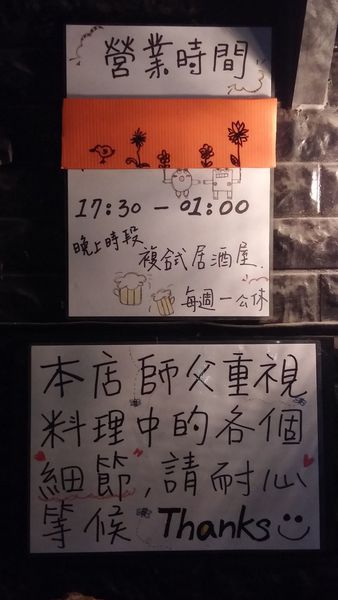 營業時間
17:30 - 01:00
晚上時段
複合式居酒屋.
每週一公休
本店師父重視
料理中的各個
細節,請耐心
等候 Thanks